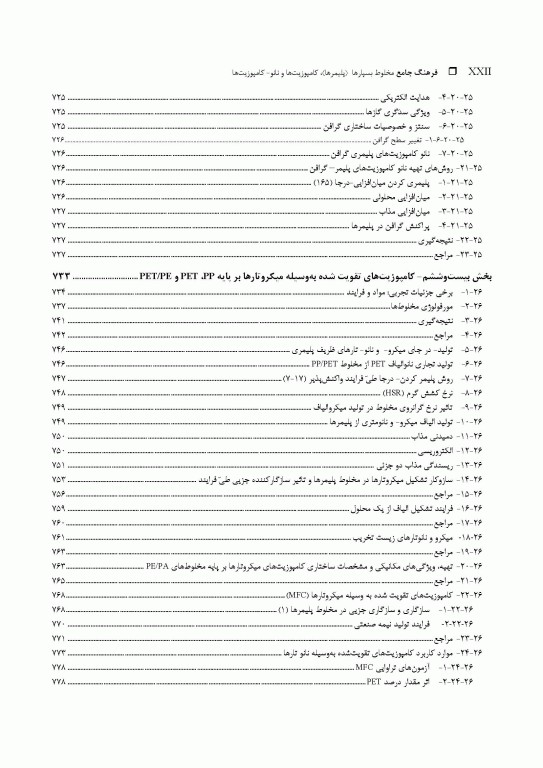 XXII ❒ فرهنگ جامع مخلوط بسپارها (پلیمرها)، کامپوزیت‌ها و نانو- کامپوزیت‌ها
۲۵-۲۰-۴- هدایت الکتریکی ۷۲۵
۲۵-۲۰-۵- ویژگی سدگری گازها ۷۲۵
۲۵-۲۰-۶- سنتز و خصوصیات ساختاری گرافن ۷۲۵
۲۵-۲۰-۶-۱- تغییر سطح گرافن ۷۲۶
۲۵-۲۰-۷- نانو کامپوزیت‌های پلیمری گرافن ۷۲۶
۲۵-۲۱- روش‌های تهیه نانو کامپوزیت‌های پلیمر– گرافن ۷۲۶
۲۵-۲۱-۱- پلیمری کردن میان‌افزایی-درجا (۱۶۵) ۷۲۶
۲۵-۲۱-۲- میان‌افزایی محلولی ۷۲۶
۲۵-۲۱-۳- میان‌افزایی مذاب ۷۲۷
۲۵-۲۱-۴- پراکنش گرافن در پلیمرها ۷۲۷
۲۵-۲۲- نتیجه‌گیری ۷۲۷
۲۵-۲۳- مراجع ۷۲۷
بخش بیست‌وششم - کامپوزیت‌های تقویت شده به‌وسیله میکروتارها بر پایه PET ،PP و PET/PE ۷۳۳
۲۶-۱- برخی جزئیات تجربی: مواد و فرایند ۷۳۴
۲۶-۲- مورفولوژی مخلوط‌ها ۷۳۷
۲۶-۳- نتیجه‌گیری ۷۴۱
۲۶-۴- مراجع ۷۴۲
۲۶-۵- تولید- در جای میکرو- و نانو- تارهای ظریف پلیمری ۷۴۶
۲۶-۶- تولید تجاری نانوالیاف PET از مخلوط PP/PET ۷۴۶
۲۶-۷- روش پلیمر کردن- درجا طیّ فرایند واکنش‌پذیر (۱۷-۷) ۷۴۷
۲۶-۸- نرخ کشش گرم (HSR) ۷۴۸
۲۶-۹- تاثیر نرخ گرانروی مخلوط در تولید میکروالیاف ۷۴۹
۲۶-۱۰- تولید الیاف میکرو- و نانومتری از پلیمرها ۷۴۹
۲۶-۱۱- دمیدنی مذاب ۷۵۰
۲۶-۱۲- الکتروریسی ۷۵۰
۲۶-۱۳- ریسندگی مذاب دو جزئی ۷۵۱
۲۶-۱۴- سازوکار تشکیل میکروتارها در مخلوط پلیمرها و تاثیر سازگارکننده جزیی طیّ فرایند ۷۵۳
۲۶-۱۵- مراجع ۷۵۶
۲۶-۱۶- فرایند تشکیل الیاف از یک محلول ۷۵۹
۲۶-۱۷- مراجع ۷۶۰
۲۶-۱۸- میکرو و نانوتارهای زیست تخریب ۷۶۱
۲۶-۱۹- مراجع ۷۶۳
۲۶-۲۰- تهیه، ویژگی‌های مکانیکی و مشخصات ساختاری کامپوزیت‌های میکروتارها بر پایه مخلوط‌های PE/PA ۷۶۳
۲۶-۲۱- مراجع ۷۶۵
۲۶-۲۲- کامپوزیت‌های تقویت شده به وسیله میکروتارها (MFC) ۷۶۸
۲۶-۲۲-۱- سازگاری و سازگاری جزیی در مخلوط پلیمرها (۱) ۷۶۸
۲۶-۲۲-۲- فرایند تولید نیمه صنعتی ۷۷۰
۲۶-۲۳- مراجع ۷۷۱
۲۶-۲۴- موارد کاربرد کامپوزیت‌های تقویت‌شده به‌وسیله نانو تارها ۷۷۳
۲۶-۲۴-۱- آزمون‌های تراوایی MFC ۷۷۸
۲۶-۲۴-۲- اثر مقدار درصد PET ۷۷۸